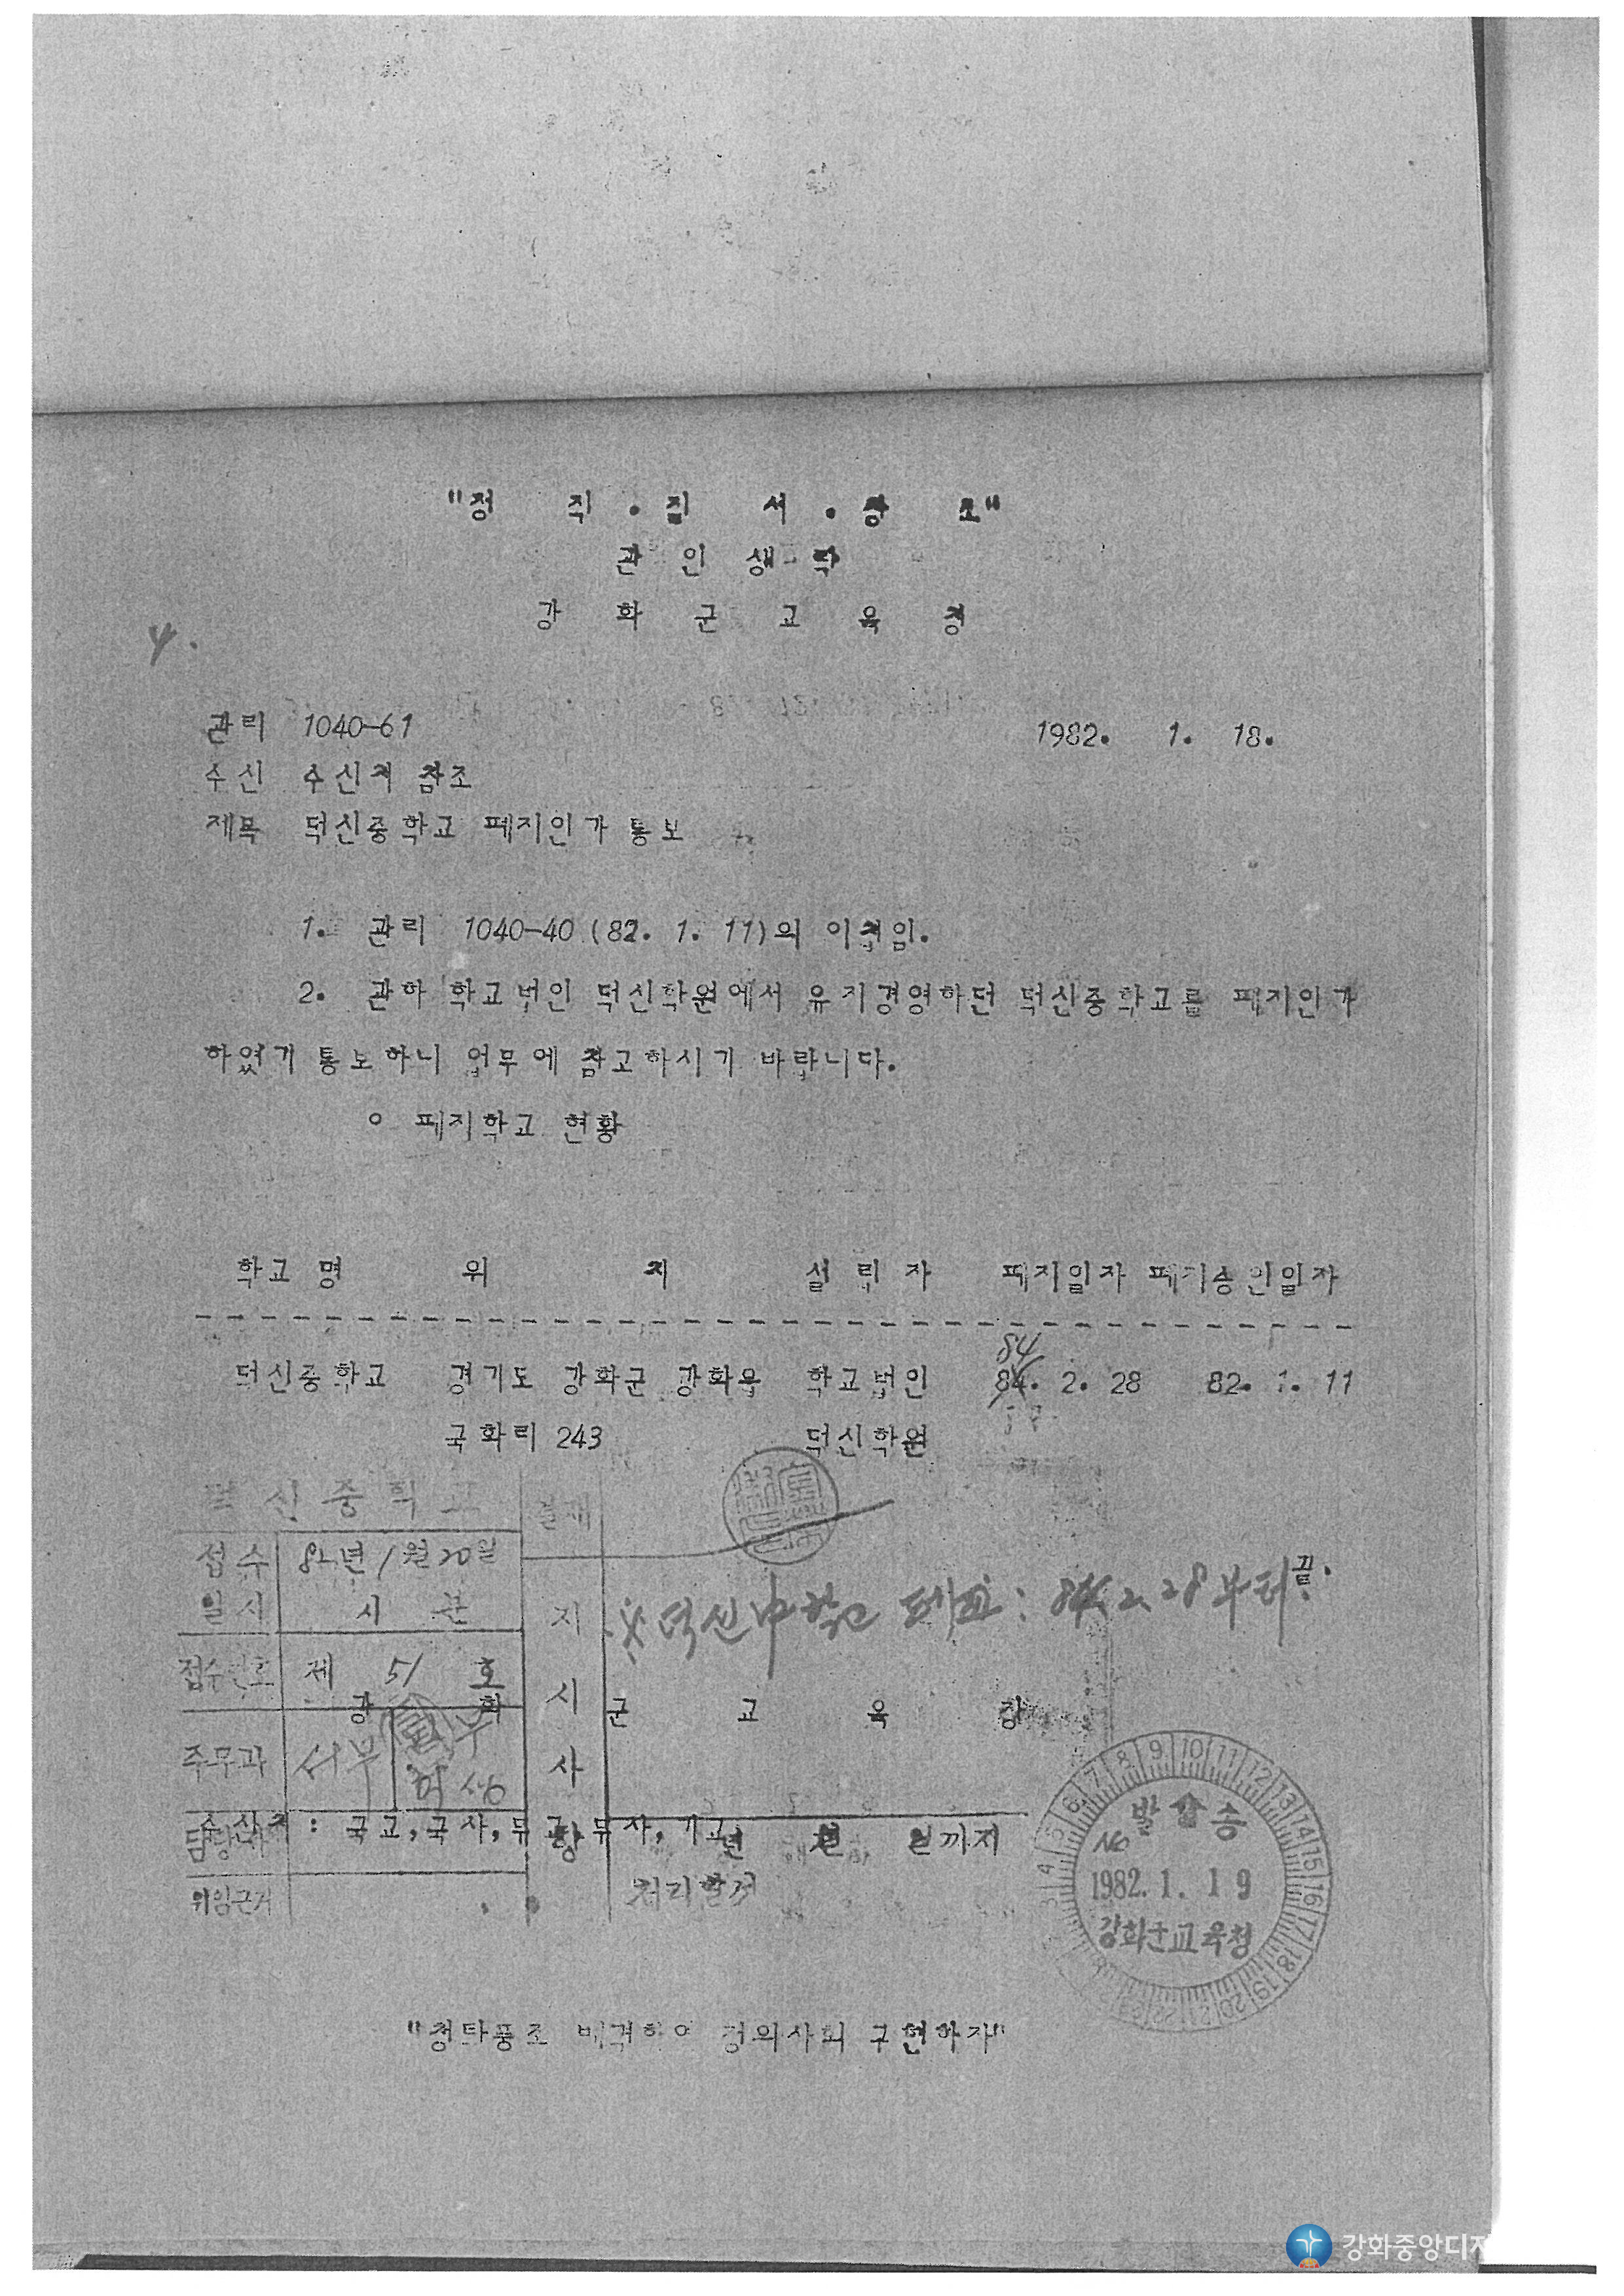 "정 직 · 질 서 · 창 조"
관 인 생 략
강 화 군 교 육 청
관리 1040-61 1982. 1. 18.
수신 수신처 참조
제목 덕신중학교 폐지인가 통보
1. 관리 1040-40 (82. 1. 11)의 이첩임.
2. 관하 학교법인 덕신학원에서 유지경영하던 덕신중학교를 폐지인가
하였기 통보하니 업무에 참고하시기 바랍니다.
o 폐지학교 현황
학교명 위 치 설 리 자 폐지일자 폐지승인일자
84
덕신중학교 경기도 강화군 강화읍 학교법인 84. 2. 28 82. 1. 11
국화리 243 덕신학원
덕신중학교 결재
접수 82년 1월 20일
일시 시 분
끝.
※ 덕신中학교 폐교: 84. 2. 28부터.
접수번호 제 51 호
지 시 사 항
강 화 군 교 육 장
주무과 서무
수신처: 국교, 국사,
년 월 일까지
처리할것
위임근거
발송
No
1982. 1. 19
강화군교육청
"청탁풍조 배격하여 정의사회 구현하자"
강화중앙디지